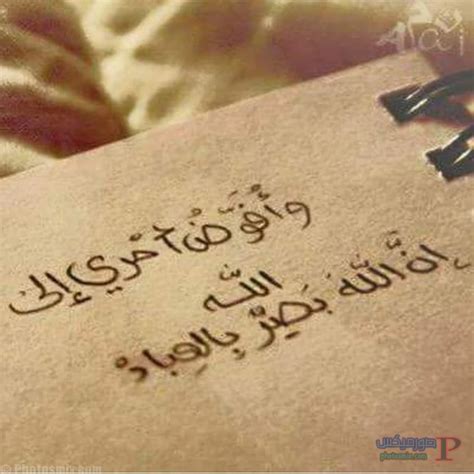 وَأُفَوِّضُ أمري إلى
اللَّه
إِنَّ اللَّهَ بَصِيْرٌ بِالعِبادْ
صورميكس
photosmix.com
© Photosmix.com